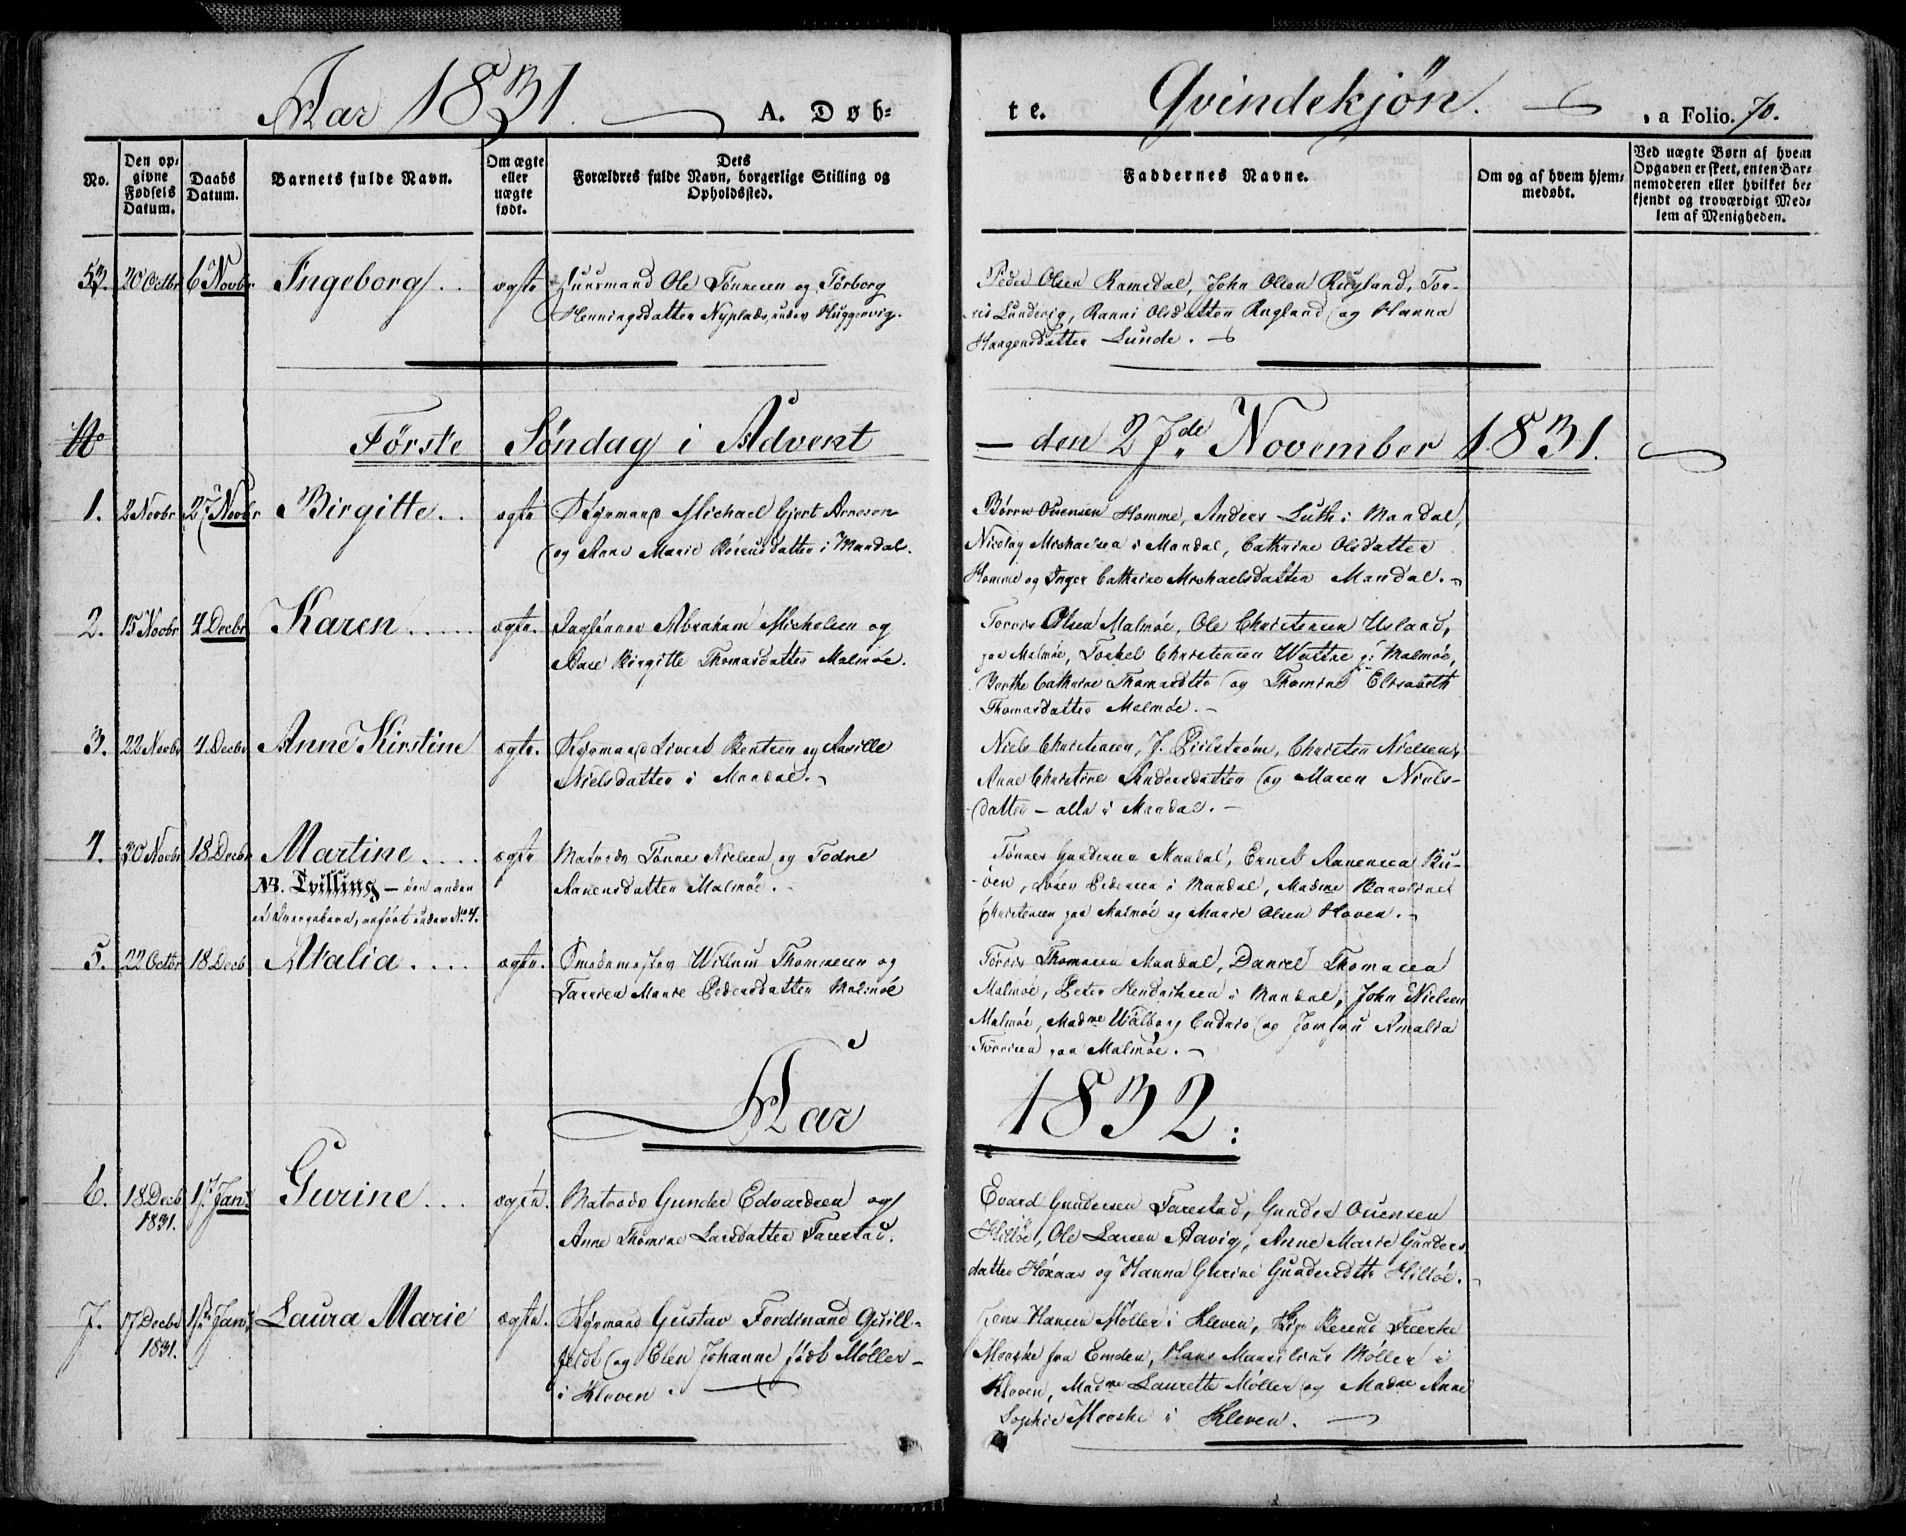 Aar 1831. A. Døb-
te. Qvindekjøn. a Folio. 70.
No.
Den op-
givne
Fødsels
Datum.
Daabs
Datum.
Barnets fulde Navn.
Om ægte
eller
uægte
født.
Dets
Forældres fulde Navn, borgerlige Stilling og
Opholdssted.
Faddernes Navne.
Om og af hvem hjem-
medøbt.
Ved uægte Børn af hvem
Opgaven er skeet, enten Bar-
nemoderen eller hvilket be-
kjendt og troværdigt Med-
lem af Menigheden.
53. 20 Octbr 6 Novbr Ingeborg. ægte Huusmand Ole Tønnesen og Torborg
Henningsdatter Nyplads under Huggenvig.
Peder Olsen Ramsdal, John Olsen Rugland, Tor-
Lundevig, Ranni Olsdatter Rugland og Hanna
Haagensdatter Lunde.
Første Søndag i Advent
den 27de November 1831.
1. 2 Novbr 27 Novbr Birgitte. ægte Styrmand Michael Gjert Arnesen
og Ane Marie Børresdatter i Mandal.
Børre Ouensen Homme, Anders Luth i Mandal,
Nicolay Michaelsen i Mandal, Cathrine Olsdatter
Homme og Inger Cathrine Michaelsdatter Mandal.
2. 15 Novbr 4 Decbr Karen ægte. Daglønner Abraham Michelsen og
Aase Birgitte Thomasdatter Malmøe.
Torris Olsen Malmøe, Ole Christensen Usland,
paa Malmøe, Torkel Christensen på Malmøe,
Berthe Cathrine Thomasdtr og Thomine Elisabeth
Thomasdatter Malmøe.
3. 22 Novbr 4 Decbr Anne Kirstine ægte. Styrmand Sivert Bentsen og Aasille
Nielsdatter i Mandal.
Niels Christensen, J. Christen Nielsen,
Anne Christine Andersdatter og Maren Niels-
datter - alle i Mandal.
4. 20 Novbr 18 Decbr Martine ægte Matrods Tønnes Nielsen og Todne
Aanensdatter Malmøe.
NB. Tvilling - den anden
et Drengebarn, anført under No 4.
Tønnes Gundersen Mandal, Ernst Aanensen Bu-
øen, Peder Pedersen i Mandal, Madme Karoline
Christensen paa Malmøe og Marie Olsen Hoven.
5. 22 Octbr 18 Decb Atalia ægte. Smedemester Willum Thomesen og
Marie Pedersdatter Malmøe
Torris Thomasen Mandal, Daniel Thomasen
Malmøe, Peter Hendriksen i Mandal, John Nielsen
Malmøe, Madme Walborg og Jomfru Amalia
Torrisen paa Malmøe.
Aar 1832:
6. 18 Decb 1831. 1st Jan: Gurine ægte. Matrods Gunder Edvardsen og
Anne Thomine Larsdatter Farestad.
Evard Gundersen Farestad, Gunder Ouensen
Hilløe, Ole Larsen Aavig, Anne Marie Gunders-
datter Høxaas og Hanna Gurine Gundersdtr Hilløe.
7. 17 Decbr 1831. 1st Jan: Laura Marie ægte. Styrmand Gustav Ferdinand Qvill-
feldt og Elen Johanne født Møller
i Kleven.
Jens Hansen Møller i Kleven, Berend Freerks
Meeske fra Emden, Hans Marsilius Møller i
Kleven, Madme Laurette Møller og Madme Anne
Sophie Meeske i Kleven.